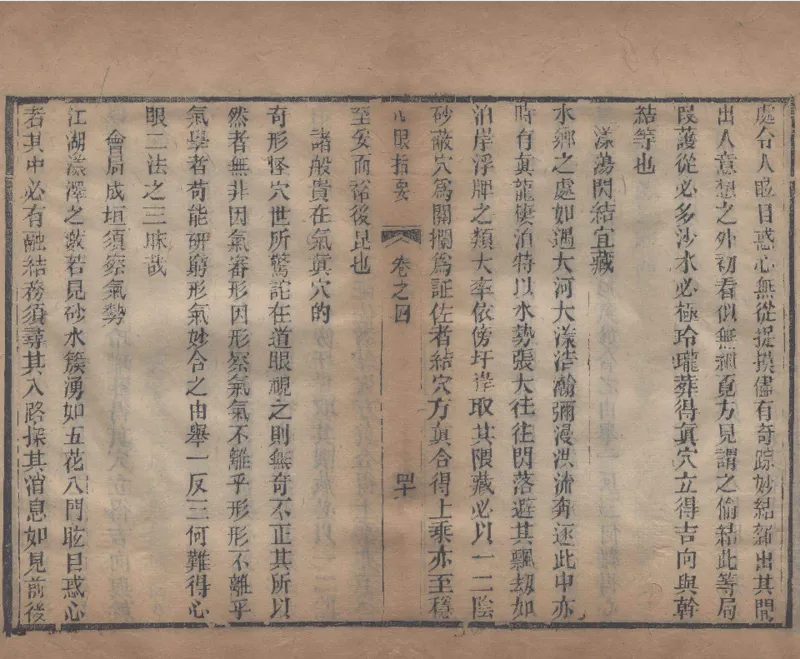 處令人眩目惑心無從捉摸儘有奇踪妙結雜出其間
出人意想之外初看似無細覓方見謂之偷結此等局
叚護從必多沙水必極玲瓏葬得眞穴立得吉向與幹
結等也
漾蕩閃結宜藏
水鄉之處如遇大河大漾浩瀚彌漫洪流奔逐此中亦
時有眞龍棲泊特以水勢張大往往閃落避其飄刼如
泊岸浮牌之類大率依傍圩岸取其隈藏必以一二陰
砂蔽穴爲關攔爲証佐者結穴方眞合得上乘亦至穩
心眼指要 卷之四 四十
至妥而裕後昆也
諸般貴在氣眞穴的
奇形怪穴世所驚詫在道眼視之則無奇不正其所以
然者無非因氣審形因形察氣氣不離乎形形不離乎
氣學者苟能研窮形氣妙合之由舉一反三何難得心
眼二法之三昧哉
會局成垣須察氣勢
江湖蕩澤之㴠若見砂水簇湧如五花八門眩目惑心
者其中必有融結務須尋其入路探其消息如見前後